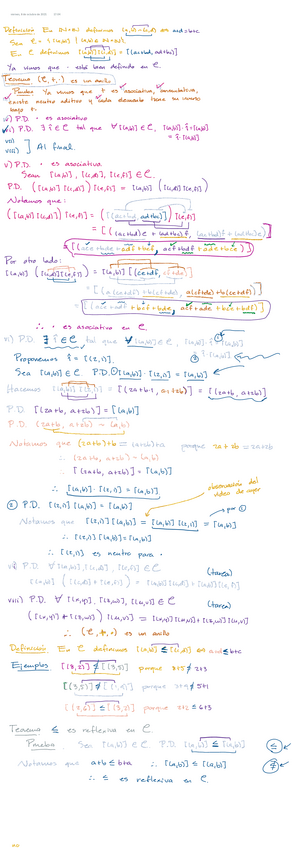 Definición. En ℕ×ℕ definimos (a,b)~(c,d) ⇔ a+d=b+c
Sea ℭ = { [(a,b)] | (a,b) ∈ ℕ×ℕ }.
En ℭ definimos [(a,b)]·[(c,d)] = [(ac+bd, ad+bc)]
Ya vimos que · está bien definido en ℭ.
Teorema (ℭ,+,·) es un anillo
Prueba Ya vimos que + es asociativa, conmutativa,
existe neutro aditivo y cada elemento tiene su inverso
bajo +.
iv) P.D. · es asociativo
vi) P.D. ∃ î ∈ ℭ tal que ∀ [(a,b)] ∈ ℭ, [(a,b)]·î = [(a,b)]
= î·[(a,b)]
vii)
viii) Al final.
v) P.D. · es asociativo.
Sean [(a,b)], [(c,d)], [(e,f)] ∈ ℭ.
P.D. ([(a,b)][(c,d)])[(e,f)] = [(a,b)]([(c,d)][(e,f)])
Notamos que:
([(a,b)][(c,d)])[(e,f)] = [(ac+bd, ad+bc)][(e,f)]
= [((ac+bd)e + (ad+bc)f, (ac+bd)f + (ad+bc)e)]
= [(ace+bde+adf+bcf, acf+bdf+ade+bce)]
Por otro lado:
[(a,b)]([(c,d)][(e,f)]) = [(a,b)][(ce+df, cf+de)]
= [(a(ce+df)+b(cf+de), a(cf+de)+b(ce+df))]
= [(ace+adf+bcf+bde, acf+ade+bce+bdf)]
∴ · es asociativo en ℭ.
vi) P.D. ∃ î ∈ ℭ tal que ∀ [(a,b)] ∈ ℭ, [(a,b)]·î = [(a,b)]
Proponemos î = [(2,1)].
Sea [(a,b)] ∈ ℭ P.D. ① [(a,b)]·[(2,1)] = [(a,b)]
Hacemos [(a,b)][(2,1)] = [(2a+b·1, a·1+2b)] = [(2a+b, a+2b)]
P.D. [(2a+b, a+2b)] = [(a,b)]
P.D. (2a+b, a+2b) ~ (a,b)
Notamos que (2a+b)+b = (a+2b)+a porque 2a+2b = 2a+2b
∴ (2a+b, a+2b) ~ (a,b)
∴ [(2a+b, a+2b)] = [(a,b)]
∴ [(a,b)]·[(2,1)] = [(a,b)]
observación del
video de ayer
② P.D. [(2,1)][(a,b)] = [(a,b)]
por ①
Notamos que [(2,1)][(a,b)] = [(a,b)][(2,1)] = [(a,b)]
∴ [(2,1)][(a,b)] = [(a,b)]
∴ [(2,1)] es neutro para ·
vii) P.D. ∀ [(a,b)], [(c,d)], [(e,f)] ∈ ℭ (tarea)
[(a,b)]([(c,d)]+[(e,f)]) = [(a,b)][(c,d)]+[(a,b)][(e,f)]
viii) P.D. ∀ [(x,y)], [(z,w)], [(u,v)] ∈ ℭ (tarea)
([(x,y)]+[(z,w)])[(u,v)] = [(x,y)][(u,v)]+[(z,w)][(u,v)]
∴ (ℭ,+,·) es un anillo
Definición. En ℭ definimos [(a,b)] ≤ [(c,d)] ⇔ a+d ≤ b+c
Ejemplos
Teorema ≤ es reflexiva en ℭ.
Prueba. Sea [(a,b)] ∈ ℭ P.D. [(a,b)] ≤ [(a,b)]
Notamos que a+b ≤ b+a ∴ [(a,b)] ≤ [(a,b)]
∴ ≤ es reflexiva en ℭ.